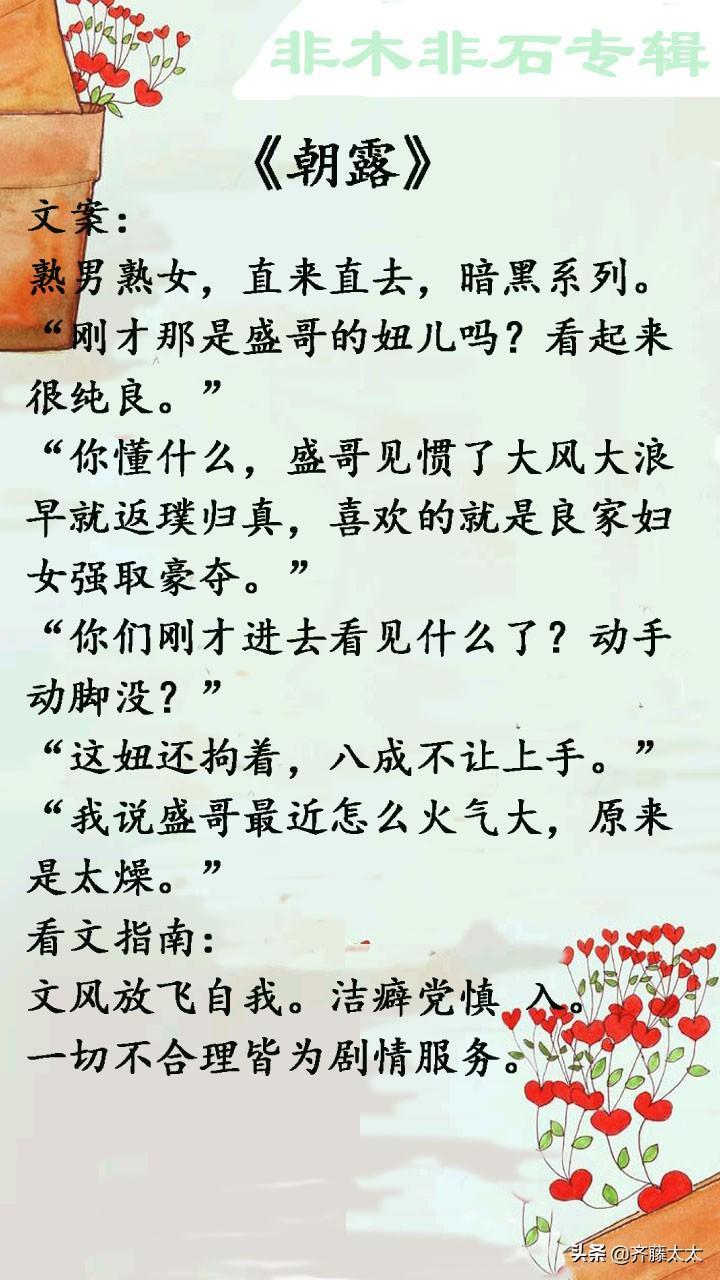 非木非石专辑
《朝露》
文案：
熟男熟女，直来直去，暗黑系列。
“刚才那是盛哥的妞儿吗？看起来
很纯良。”
“你懂什么，盛哥见惯了大风大浪
早就返璞归真，喜欢的就是良家妇
女强取豪夺。”
“你们刚才进去看见什么了？动手
动脚没？”
“这妞还拘着，八成不让上手。”
“我说盛哥最近怎么火气大，原来
是太燥。”
看文指南：
文风放飞自我。洁癖党慎 入。
一切不合理皆为剧情服务。
头条 @齐藤太太